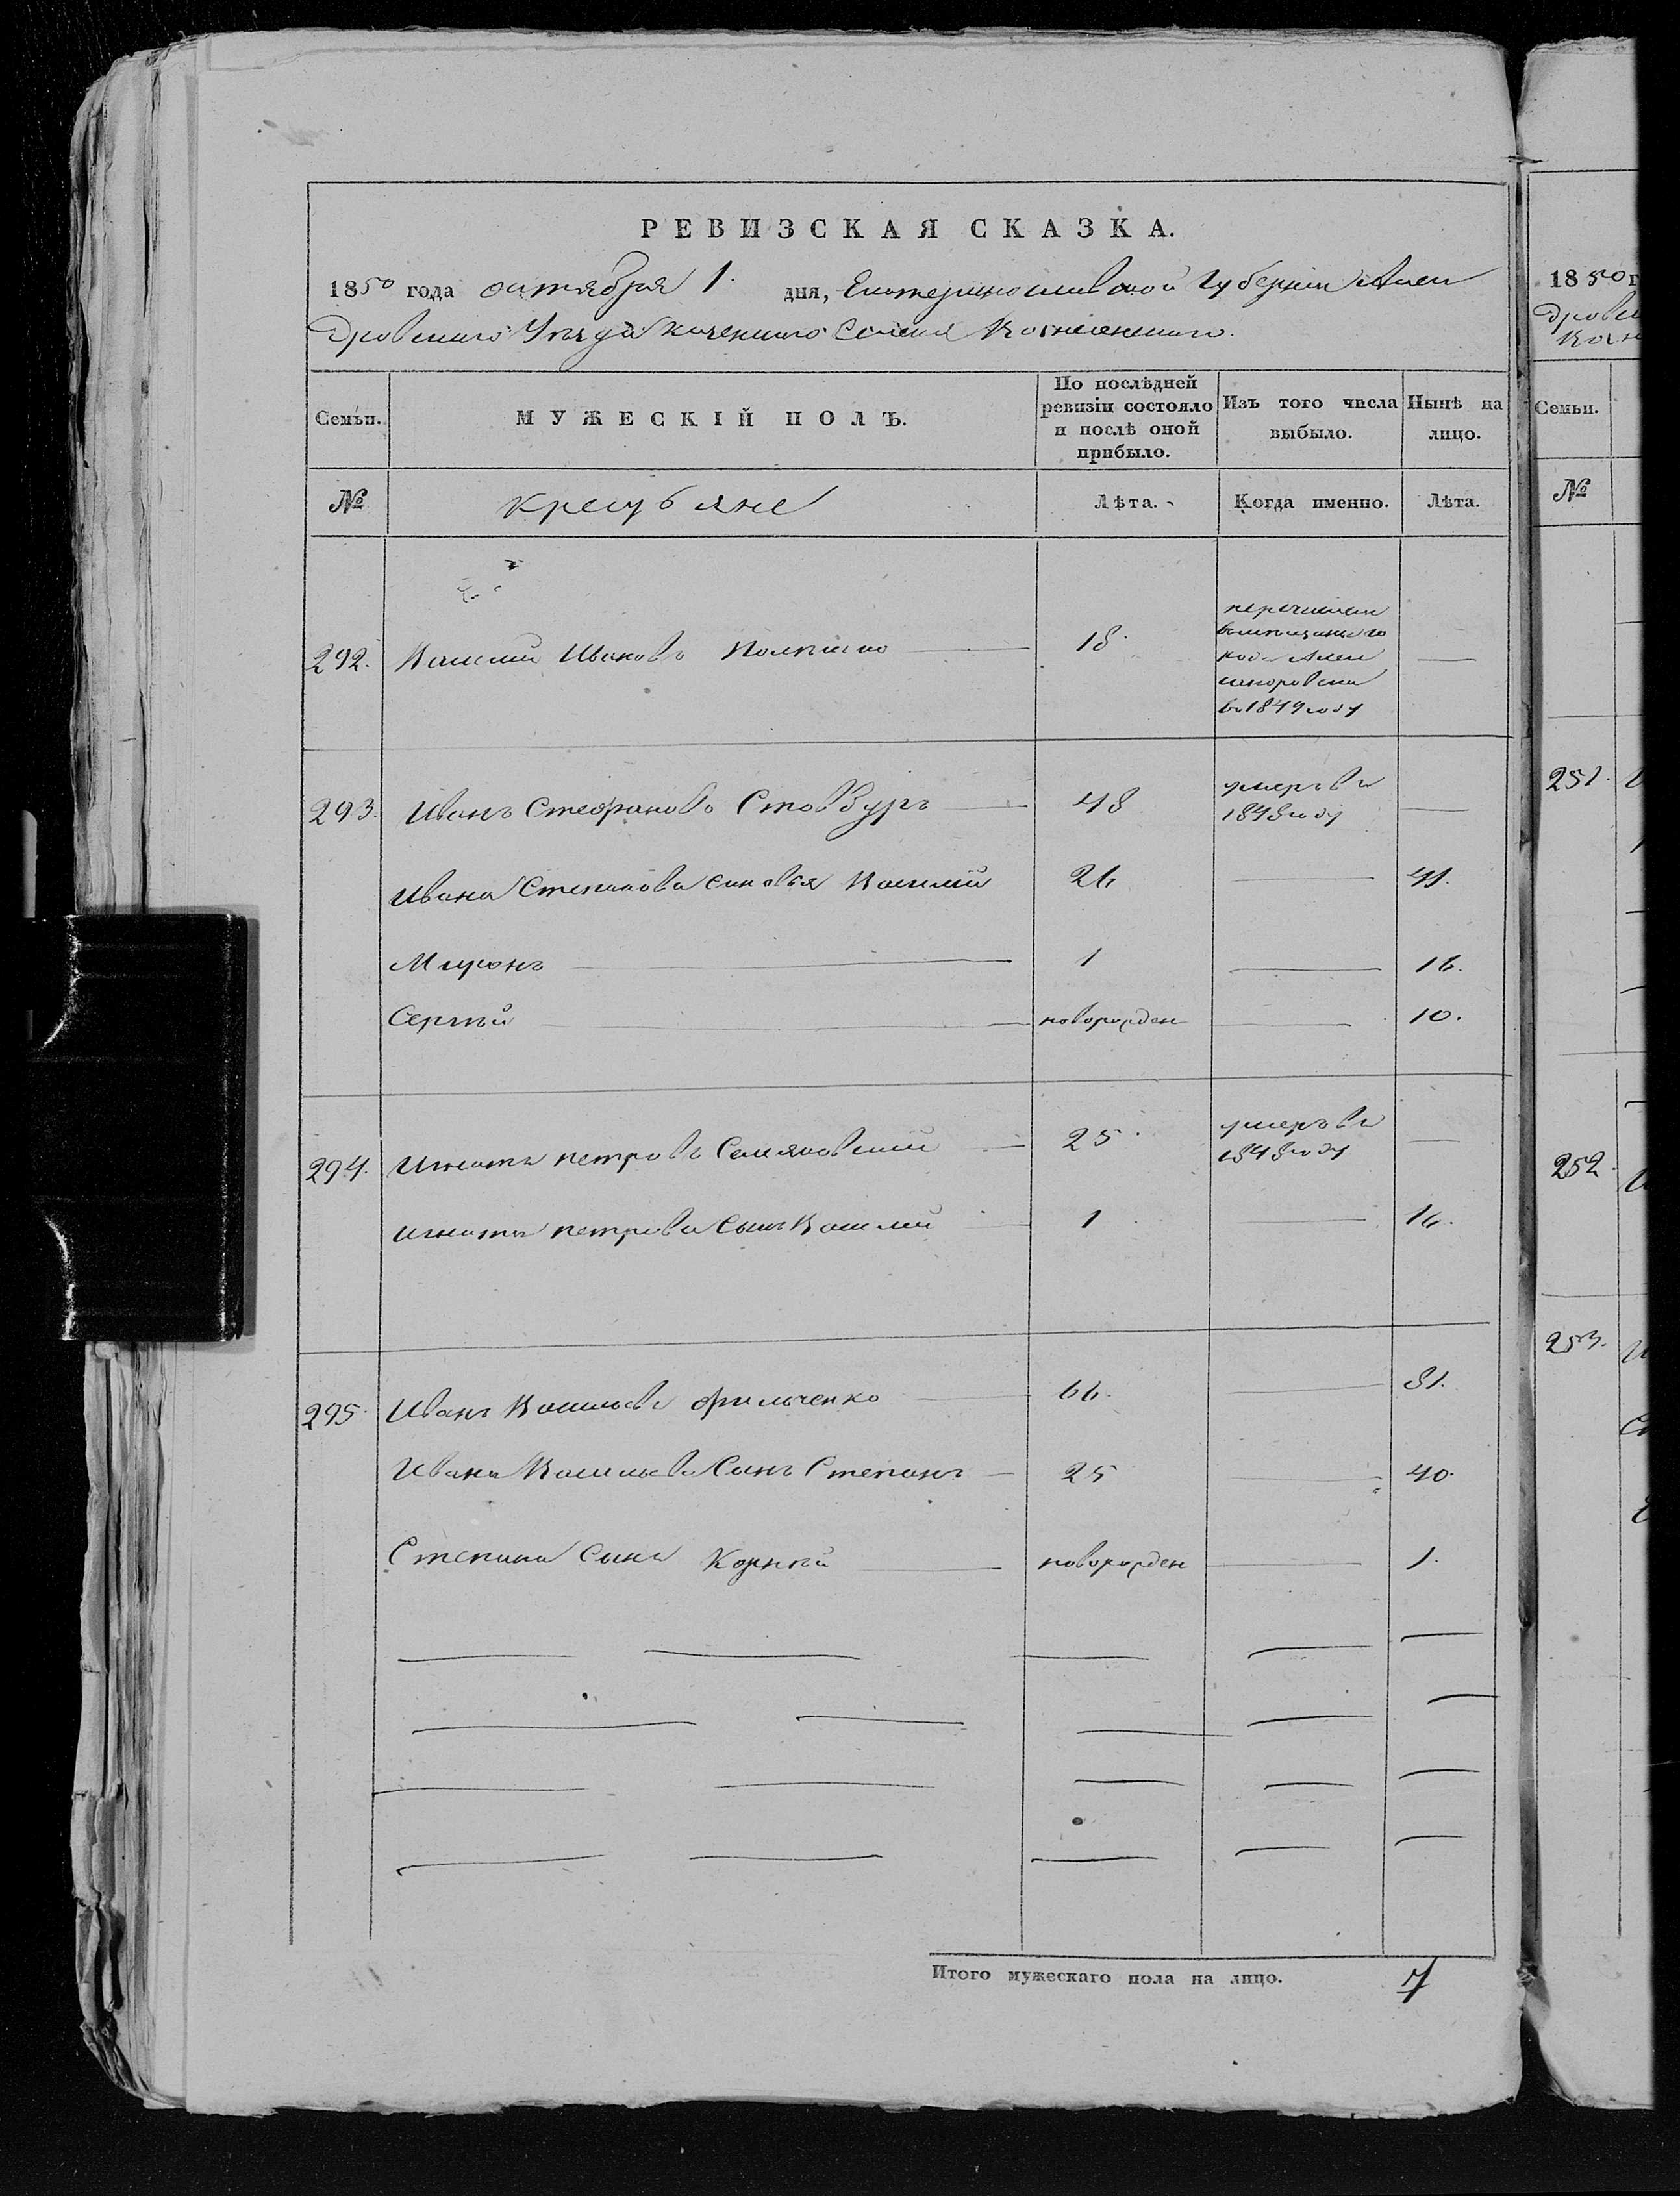 РЕВИЗСКАЯ СКАЗКА.
1850 года октября 1. дня, Екатеринославской Губернии Алек
дровскаго Уѣзда казеннаго Селенія Вознесенскаго.
Семьи. МУЖЕСКІЙ ПОЛЪ. По послѣдней ревизіи состояло и послѣ оной прибыло. Изъ того числа выбыло. Нынѣ на лицо.
№ Лѣта. Когда именно. Лѣта.
перечислен
Алек
сандровска
в 1849 году
292. Василий Иванов 18 —
293. Иванъ Стефановъ Стовбуръ 48 умеръ в 1848 году —
Ивана Степанова синовья Василий 26 — 41.
Миронъ 1 — 16.
Сергѣй новорожден — 10.
294. Игнатъ петровъ 25 умеръ в 1848 году —
игната петрова Сынъ Василий 1 — 16.
295. Иванъ Васильевъ Фильченко 66. — 81.
Ивана Васильева Сынъ Степанъ 25 — 40.
Степана Сынъ Корнѣй новорожден — 1.
Итого мужескаго пола на лицо. 7
1850 г
Семьи.
№
251.
252.
253.